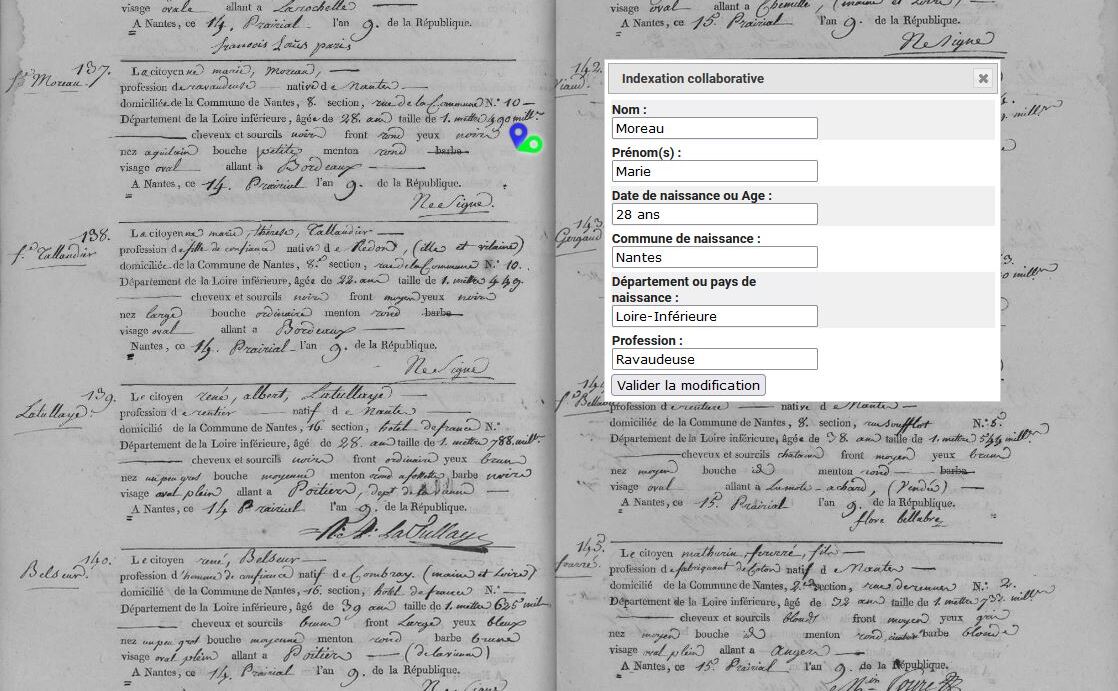 visage ovale allant a Larochelle
A Nantes, ce 14. Prairial l'an 9. de la République.
françois Louis paris
137.
fe. Moreau.
La citoyenne marie, Moreau,
profession de ravaudeuse native de Nantes
domiciliée de la Commune de Nantes, 8. section, rue de la Commune N.° 10
Département de la Loire inférieure, âgée de 28. ans taille de 1. mettre 490 mill.rs
cheveux et sourcils noirs front rond yeux noirs
nez aquilain bouche petite menton rond barbe
visage oval allant à Bordeaux
A Nantes, ce 14. Prairial l'an 9. de la République.
Ne Signe.
138.
fe. Tallandier
La citoyenne marie, thérèse, Tallandier
profession de fille de confiance native de Redon, (ille et vilaine)
domiciliée de la Commune de Nantes, 8.e section, rue de la Commune N.° 10.
Département de la Loire inférieure, âgée de 22. ans taille de 1. mettre 449.
cheveux et sourcils noirs front moyen yeux noirs
nez large bouche ordinaire menton rond barbe
visage oval allant a Bordeaux
Nantes, ce 14. Prairial l'an 9. de la République.
Ne Signe
139.
Latullaye.
Le citoyen rené, albert, Latullaye
profession de rentier natif de Nantes
domicilié de la Commune de Nantes, 16. section, hotel de france N.°
Département de la Loire inférieure, âgé de 28. ans taille de 1. mettre 788. mill.rs
cheveux et sourcils noirs front ordinaire yeux bruns
nez un peu gros bouche moyenne menton rond a fossette barbe noire
visage oval plein allant a Poitiers, dept. de la vienne
A Nantes, ce 14 Prairial l'an 9. de la République.
LaTullaye
140.
Belseur.
Le citoyen rené, Belseur
profession d'homme de confiance natif de Combray. (maine et Loire)
domicilié de la Commune de Nantes, 16. section, hotel de france N.°
Département de la Loire inférieure, âgé de 39 ans taille de 1 mettre 625 mil
cheveux et sourcils bruns front Large yeux bleux
nez un peu gros bouche moyenne menton rond barbe brune
visage oval plein allant à Poitiers (de la vienne)
A Nantes, ce 14. Prairial l'an 9. de la République.
Ne Signe
visage oval allant a Chemillé, (maine et Loire)
A Nantes, ce 15. Prairial l'an 9. de la République.
Ne Signe
142.
Viaud.
Indexation collaborative
Nom :
Moreau
Prénom(s) :
Marie
Date de naissance ou Age :
28 ans
Commune de naissance :
Nantes
Département ou pays de
naissance :
Loire-Inférieure
Profession :
Ravaudeuse
Valider la modification
143.
Gergaud
profession de rentière native de Nantes
domiciliée de la Commune de Nantes, 8. section, rue soufflot N.° 5.
Département de la Loire inférieure, âgée de 38. ans taille de 1. mettre 544 mill.rs
cheveux et sourcils chatains front moyen yeux bruns
nez moyen bouche id menton rond barbe
visage oval allant a Lamote-achard, (Vendée)
A Nantes, ce 15. Prairial l'an 9. de la République.
flore bellabre
145.
fourré.
Le citoyen mathurin, fourré, fils
profession de fabriquant de coton natif de Nantes
domicilié de la Commune de Nantes, section, rue de rennes N.° 2.
Département de la Loire inférieure, âgé de 32 ans taille de 1. mettre 732. mill.rs
cheveux et sourcils blonds front moyen yeux gris
nez moyen bouche id menton rond barbe blonde
visage oval plein allant a angers
A Nantes, ce 15. Prairial l'an 9. de la République.